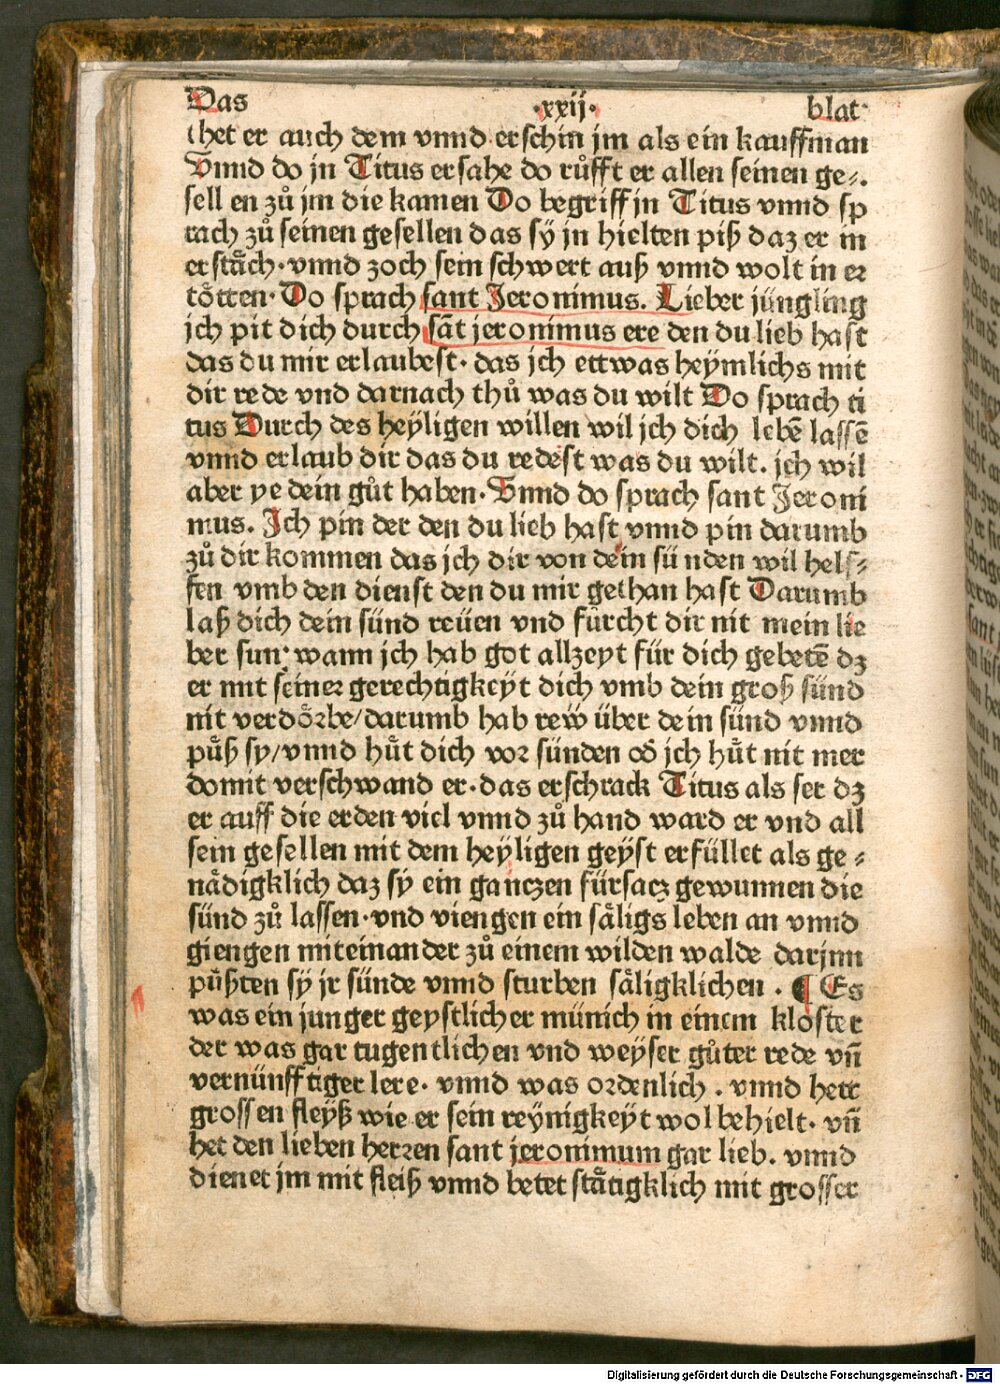 Das ·xxij· blat
thet er auch dem vnnd erschin jm als ein kauffman
Vnnd do jn Titus ersahe do růfft er allen seinen ge⸗
sell en zů jm die kamen Do begriff jn Titus vnnd sp
rach zů seinen gesellen das sÿ jn hielten piß daz er in
erståch· vnnd zoch sein schwert auß vnnd wolt in er
tötten· Do sprach sant Jeronimus. Lieber jüngling
jch pit dich durch sāt jeronimus ere den du lieb hast
das du mir erlaubest· das jch ettwas heÿmlichs mit
dir rede vnd darnach thů was du wilt Do sprach ti
tus Durch des heÿligen willen wil jch dich lebē lassē
vnnd erlaub dir das du redest was du wilt. jch wil
aber ye dein gůt haben· Vnnd do sprach sant Jeroni
mus. Jch pin der den du lieb hast vnnd pin darumb
zů dir kommen das jch dir von dein sünden wil helf⸗
fen vmb den dienst den du mir gethan hast Darumb
laß dich dein sünd reüen vnd fürcht dir nit mein lie
ber sun· wann jch hab got allzeyt für dich gebetē dz
er mit seiner gerechtigkeÿt dich vmb dein groß sünd
nit verdörbe/ darumb hab reẅ über dein sünd vnnd
püß sy/ vnnd hüt dich vor sünden od̄ jch hüt nit mer
domit verschwand er· das erschrack Titus als ser dz
er auff die erden viel vnnd zů hand ward er vnd all
sein gesellen mit dem heÿligen geÿst erfüllet als ge⸗
nådigklich daz sÿ ein ganczen fürsacz gewunnen die
sünd zů lassen· vnd viengen ein såligs leben an vnnd
giengen miteinander zů einem wilden walde darjnn
püßten sÿ jr sünde vnnd sturben såligklichen . ¶ Es
was ein junger geystlicher münich in einem kloster
der was gar tugentlichen vnd weÿser gůter rede vn̄
vernünfftiger lere· vnnd was ordenlich . vnnd hett
grossen fleÿß wie er sein reÿnigkeÿt wol behielt· vn̄
het den lieben herren sant jeronimum gar lieb. vnnd
dienet jm mit fleiß vnnd betet ståtigklich mit grosser
Digitalisierung gefördert durch die Deutsche Forschungsgemeinschaft - DFG